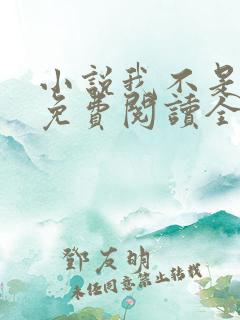 小說我不是
免費閱讀全
鄧友明
未經同意禁止轉載